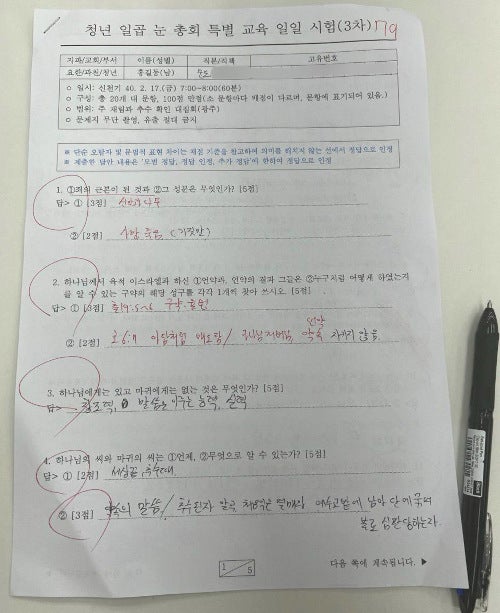 청년 일곱 눈 총회 특별 교육 일일 시험(3차) 179
지파/교회/부서 이름(성별) 직분/직책 고유번호
요한/과천/청년 홍길동(남)
○ 일시: 신천기 40. 2. 17.(금) 7:00~8:00(60분)
○ 구성: 총 20개 내 문항, 100점 만점(소 문항마다 배점이 다르며, 문항에 표기되어 있음.)
○ 범위: 주 재림과 추수 확인 대집회(광주)
○ 문제지 무단 촬영, 유출 절대 금지
※ 단순 오탈자 및 문법적 표현 차이는 채점 기준을 참고하여 의미를 해치지 않는 선에서 정답으로 인정
※ 제출한 답안 내용은 '모범 정답, 정답 인정, 추가 정답'에 한하여 정답으로 인정
1. ①죄의 근본이 된 것과 ②그 성분은 무엇인가? [5점]
답> ① [3점] 선악나무
② [2점] 사망 죽음 (거짓말)
2. 하나님께서 육적 이스라엘과 하신 ①언약과, 언약의 결과 그들은 ②누구처럼 어떻게 하였는지
를 알 수 있는 구약의 해당 성구를 각각 1개씩 찾아 쓰시오. [5점]
답> ① [3점] 출19:5-6
언약
② [2점] 호6:7 아담처럼 약속 지키지 않음
3. 하나님에게는 있고 마귀에게는 없는 것은 무엇인가? [5점]
답> 창조력, 말씀을 이루는 능력, 실력
4. 하나님의 씨와 마귀의 씨는 ①언제, ②무엇으로 알 수 있는가? [5점]
답> ① [2점] 세상끝, 추수때
② [3점] 약속의 말씀/ 추수된자 알곡 단에 묶여
불로 심판당하는자.
1/5
다음 쪽에 계속됩니다. ▶